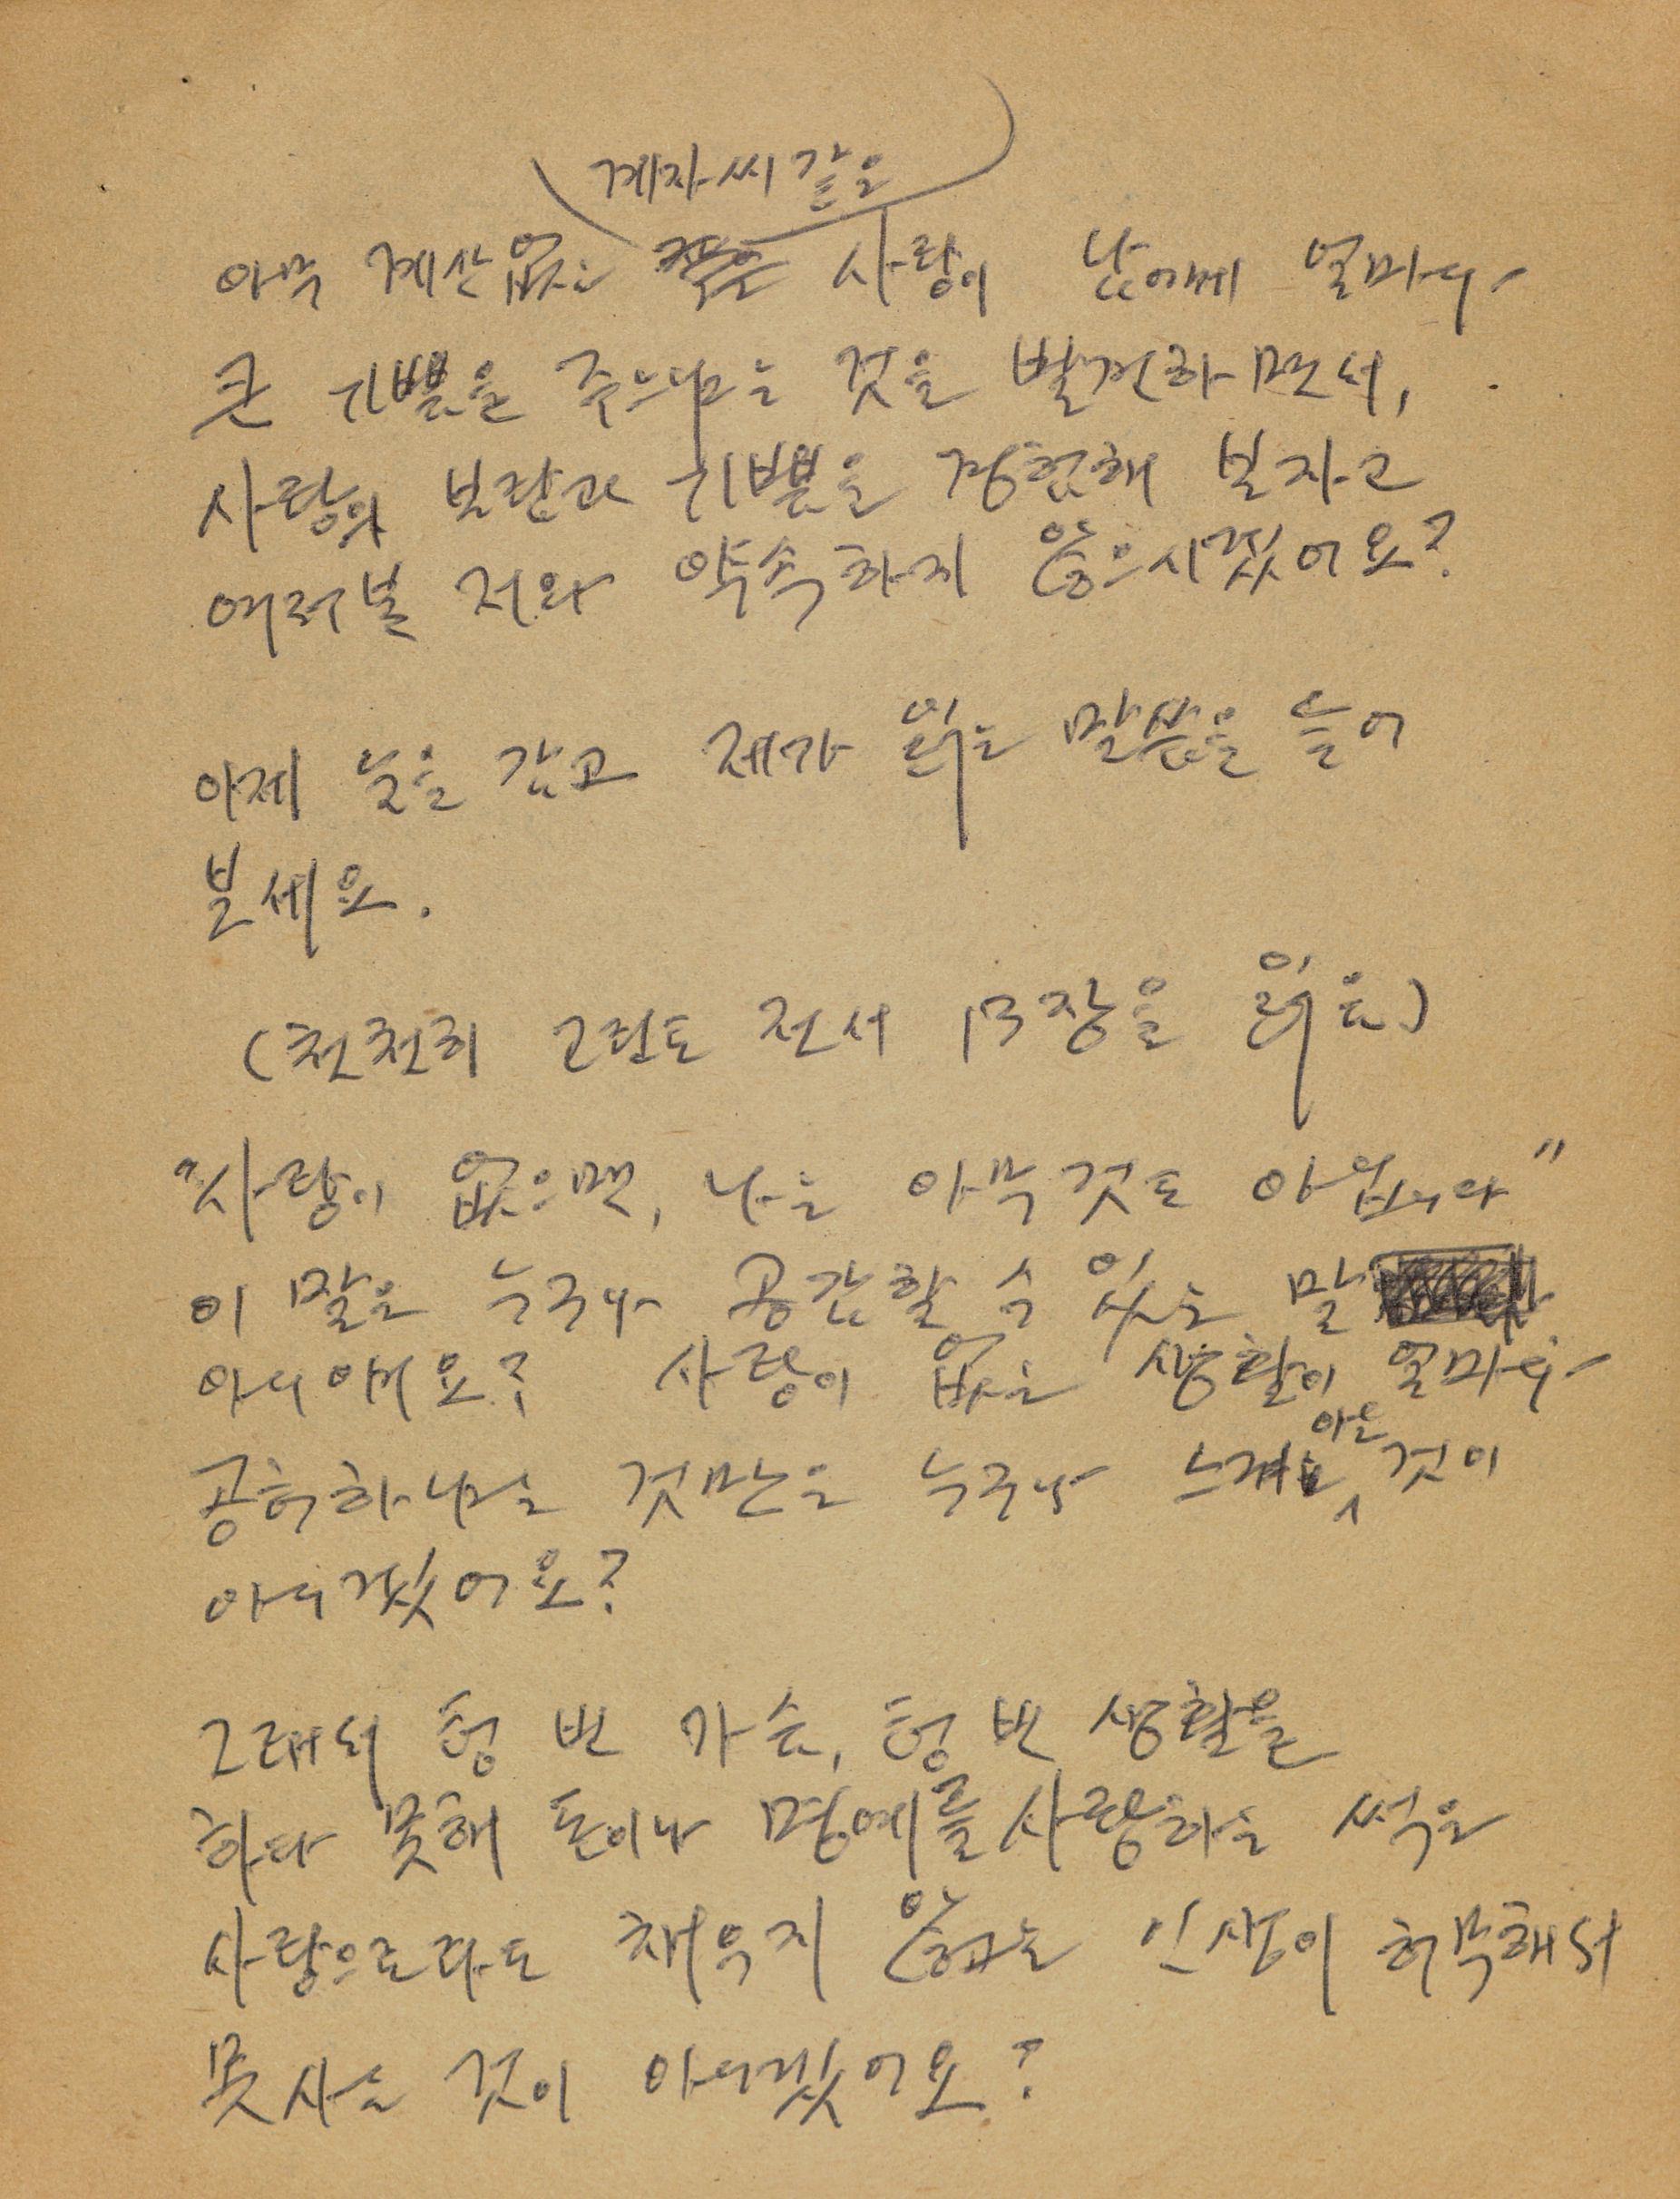 계자씨 같은
아무 계산 없는 사랑이 남에게 얼마나
큰 기쁨을 주는냐는 것을 발견하면서,
사랑의 보람과 기쁨을 경험해 보자고
여러분 저와 약속하지 않으시겠어요?
이제 눈을 감고 제가 읽는 말씀을 들어
보세요.
(천천히 고린도 전서 13장을 읽음)
"사랑이 없으면, 나는 아무것도 아닙니다"
이 말은 누구나 공감할 수 있는 말
아니예요? 사랑이 없는 생활이 얼마나
아는
공허하냐는 것만은 누구나 것이
아니겠어요?
그래서 텅 빈 가슴, 텅 빈 생활을
하다 못해 돈이나 명예를 사랑하는 썩은
사랑으로라도 채우지 않고는 인생이 허무해서
못 사는 것이 아니겠어요?